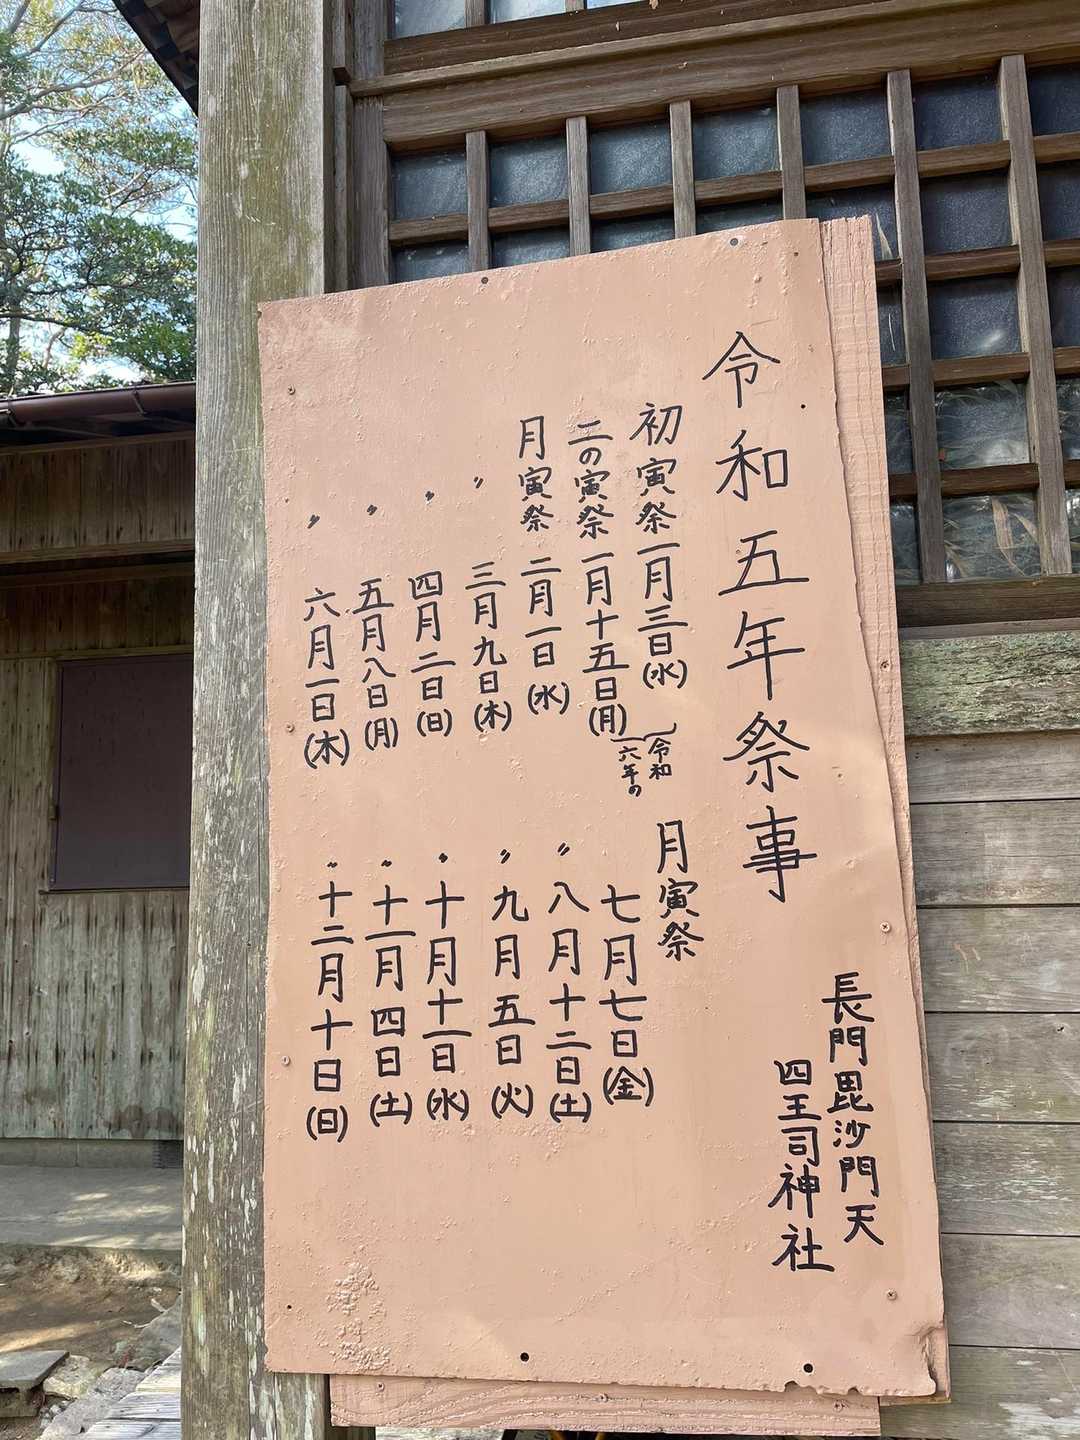 令和五年祭事
長門毘沙門天
四王司神社
初寅祭 一月三日(水)
二の寅祭 一月十五日(月)
令和
六年の
月寅祭 二月一日(水)
〃 三月九日(木)
〃 四月二日(日)
〃 五月八日(月)
〃 六月一日(木)
月寅祭
七月七日(金)
〃 八月十二日(土)
〃 九月五日(火)
〃 十月十一日(水)
〃 十一月四日(土)
〃 十二月十日(日)